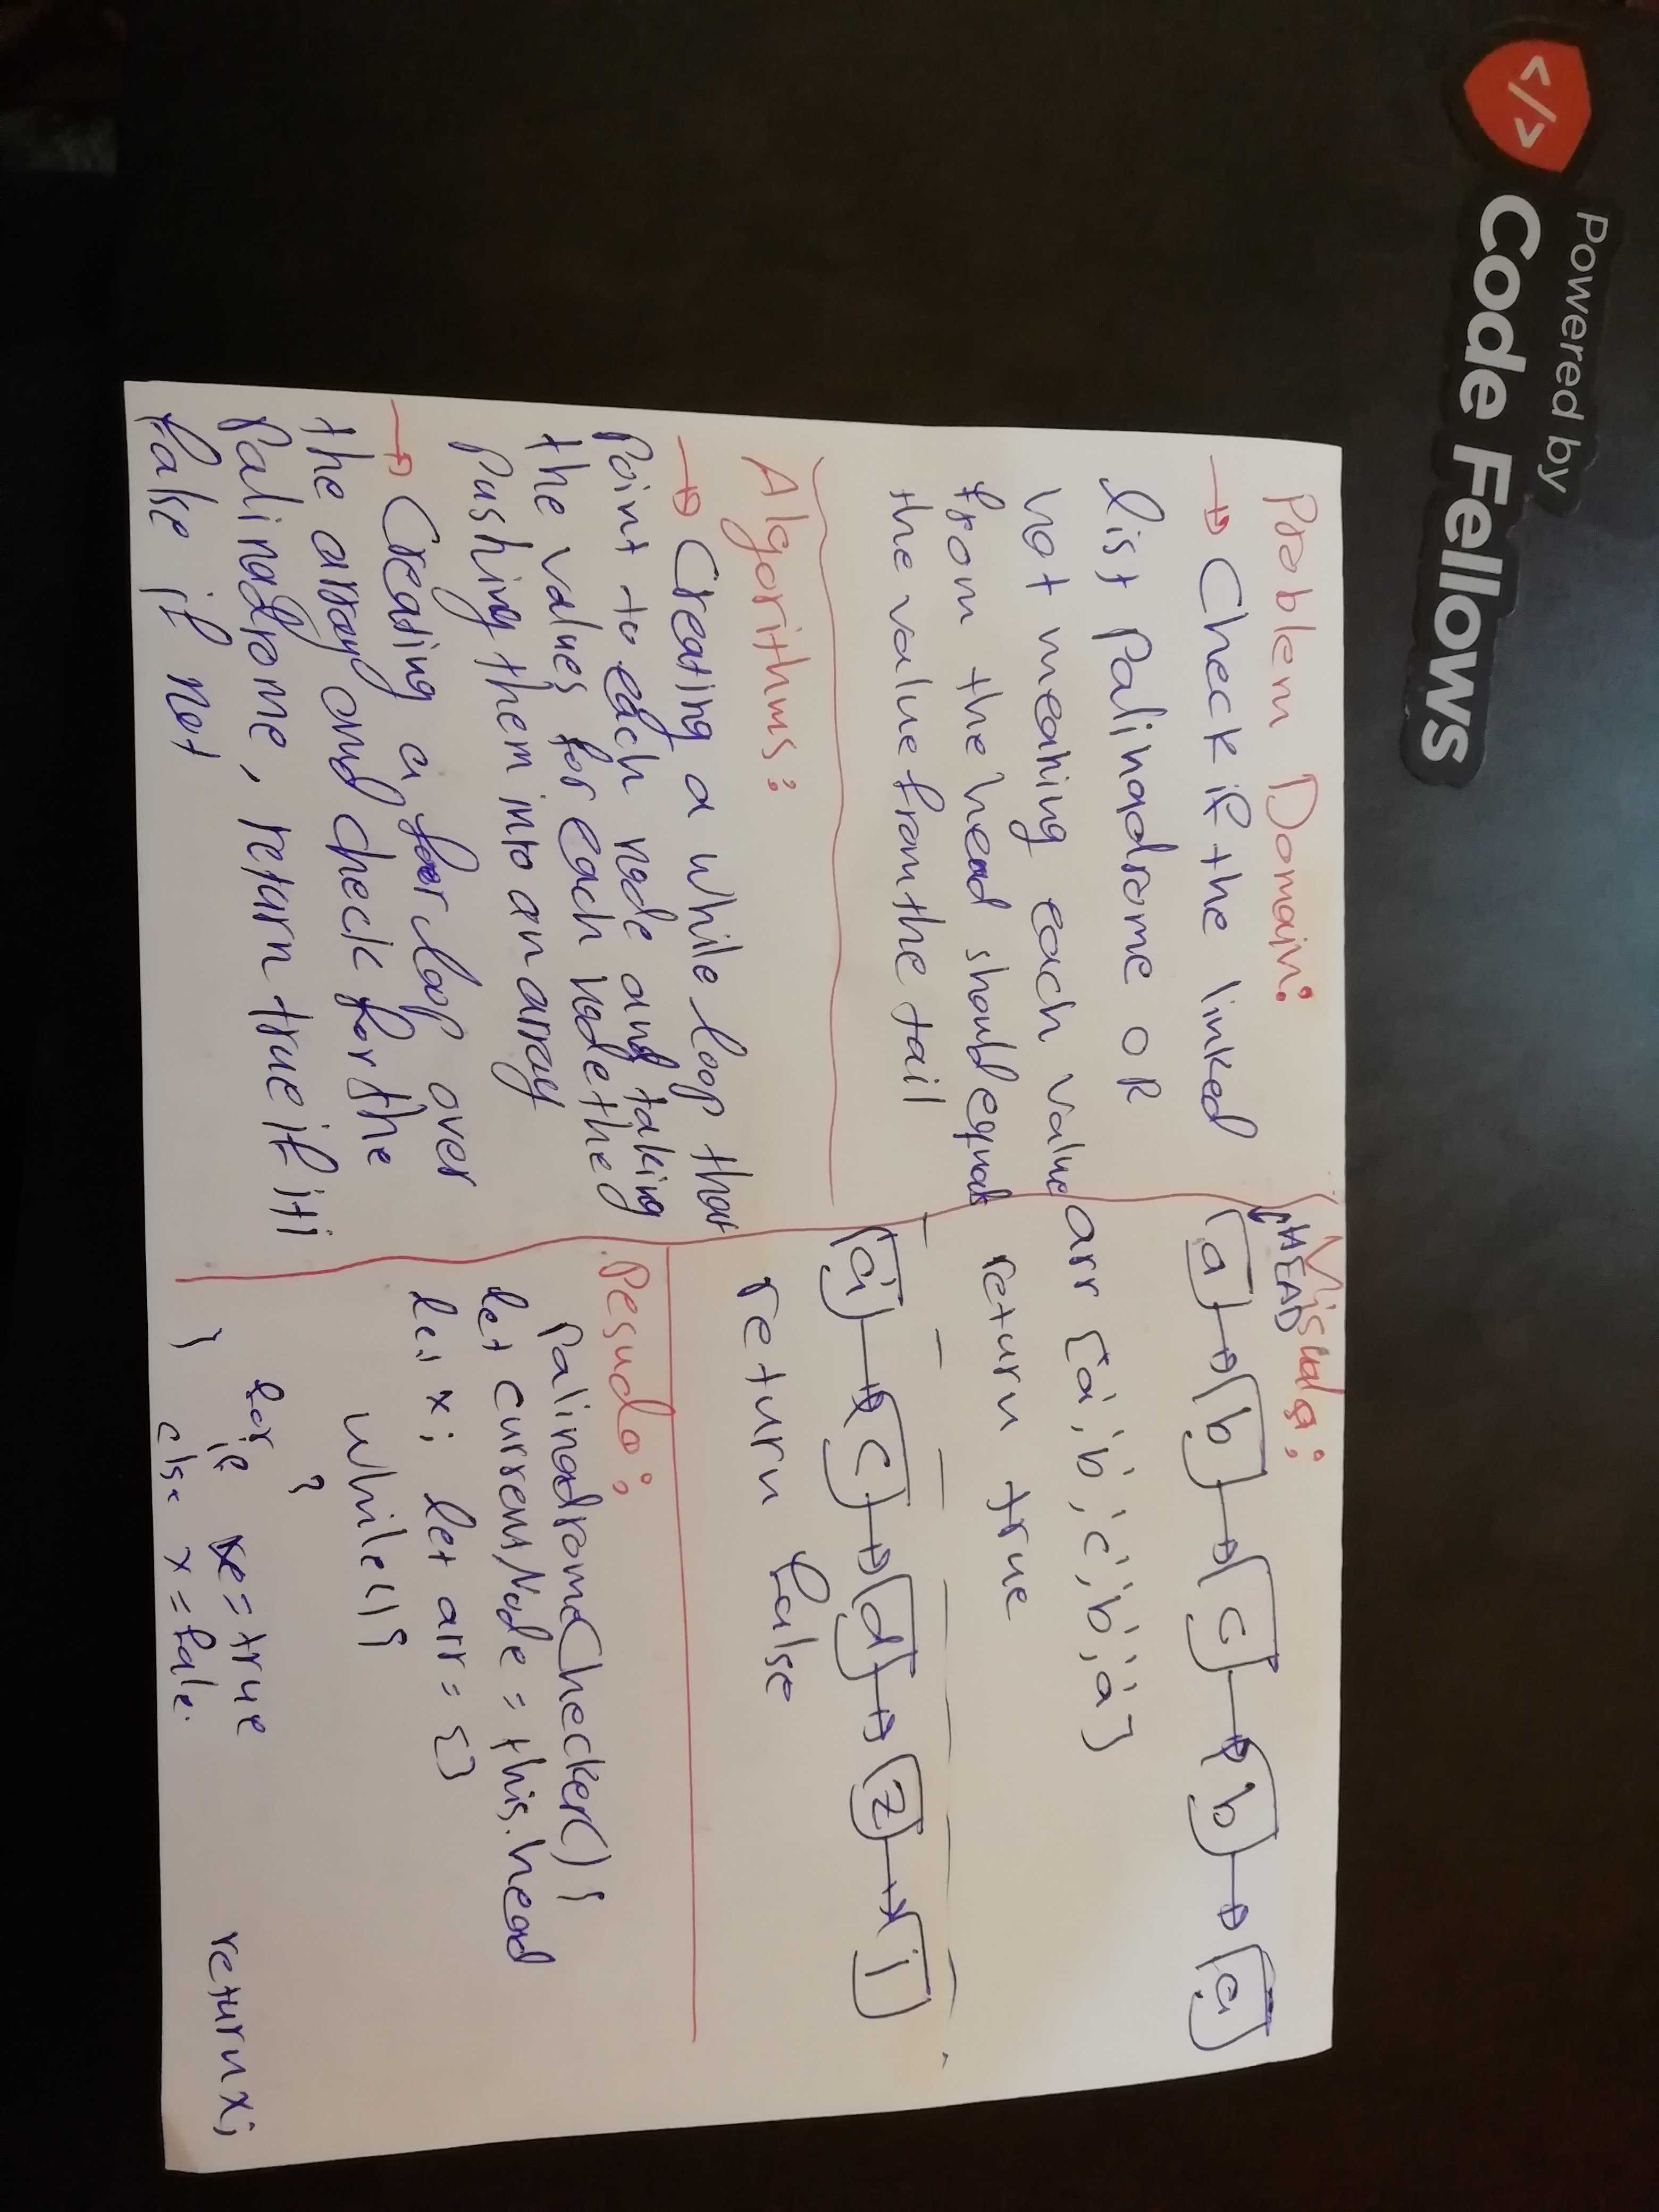 Powered by
Code Fellows
Problem Domain:
→ Check if the linked
list Palinadrome OR
not meaning each value
from the head should equal
the value from the tail
Algorithms:
→ Creating a while loop that
Point to each node and taking
the values for each node the
Pushing them into an array
→ Creating a for loop over
the array and check for the
Palinadrome, return true if iti
false if not
Visuals:
HEAD
a → b → c → b → a
arr ['a','b','c','b','a']
return true
a → c → d → z → i
return false
Pesudo:
PalinadromeChecker(){
let currentNode = this.head
let x; let arr = []
while(){
}
for
if x = true
else x = fale.
}
return x;